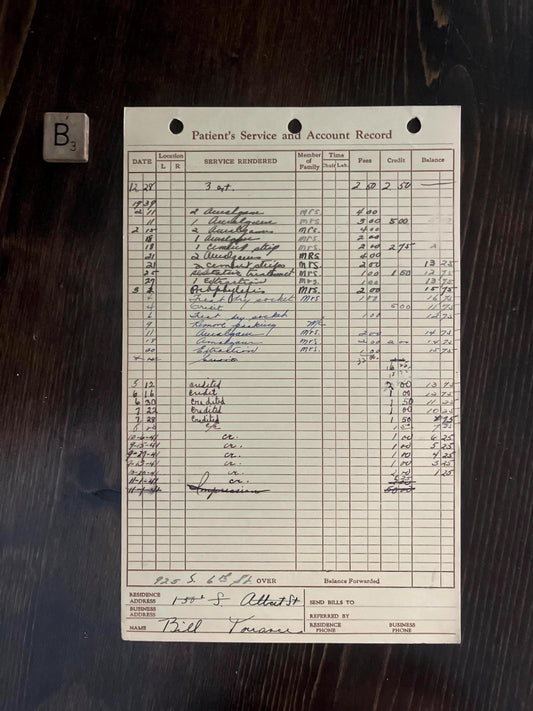 B3
Patient's Service and Account Record
DATE Location L R SERVICE RENDERED Member of Family Time Chair Lab. Fees Credit Balance
12 28 3 2 50 2 50 —
19 39
2 11 2 Amalgam Mrs. 4 00
11 1 Amalgam Mrs. 3 00 5 00
2 15 2 Amalgams Mrs. 4 00
18 1 Amalgam Mrs. 2 00
18 1 cement strip Mrs. 2 00 2 75
21 2 Amalgams MRS 4 00
21 2 cement strips Mrs. 2 00 13 25
25 treatment Mrs. 1 00 1 50 12 75
27 1 Extraction Mrs. 1 00 13 75
3 2 Prophylaxis Mrs. 2 00 15 75
4 Treat Dry socket Mrs 1 00 16 75
4 Credit 5 00 11 75
6 Treat dry socket 1 00 12 75
9 Remove packing N/C
11 Amalgam 1 Mrs. 2 00 14 75
18 Amalgam Mrs. 2 00 2 00 14 75
Extraction Mrs. 1 00 15 75
5 12 credited 2 00 13 75
6 16 credit 1 00 12 75
6 30 Credited 1 50 11 25
7 22 Credited 1 00 10 25
7 28 Credited 1 50 8 75
cr.
10-6-41 cr. 1 00 6 25
9-15-41 cr. 1 00 5 25
9-29-41 cr. 1 00 4 25
cr. 1 00 3 25
cr. 2 00 1 25
11-1-41 cr.
11-1-41 Impression
925 S. 6th St OVER Balance Forwarded
RESIDENCE ADDRESS S Albert St SEND BILLS TO
BUSINESS ADDRESS REFERRED BY
NAME Bill RESIDENCE PHONE BUSINESS PHONE